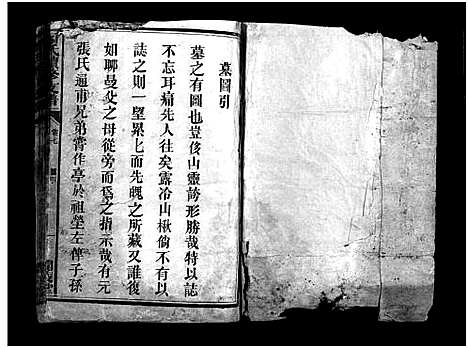 墓圖引
墓之有圖也豈侈山靈誇形勝哉特以誌
不忘耳痛先人往矣露冷山楸倘不有以
誌之則一望累七而先魄之所藏又誰復
如聊曼父之母從旁而爲之指示哉有元
張氏通甫兄弟嘗作亭於祖塋左俾子孫